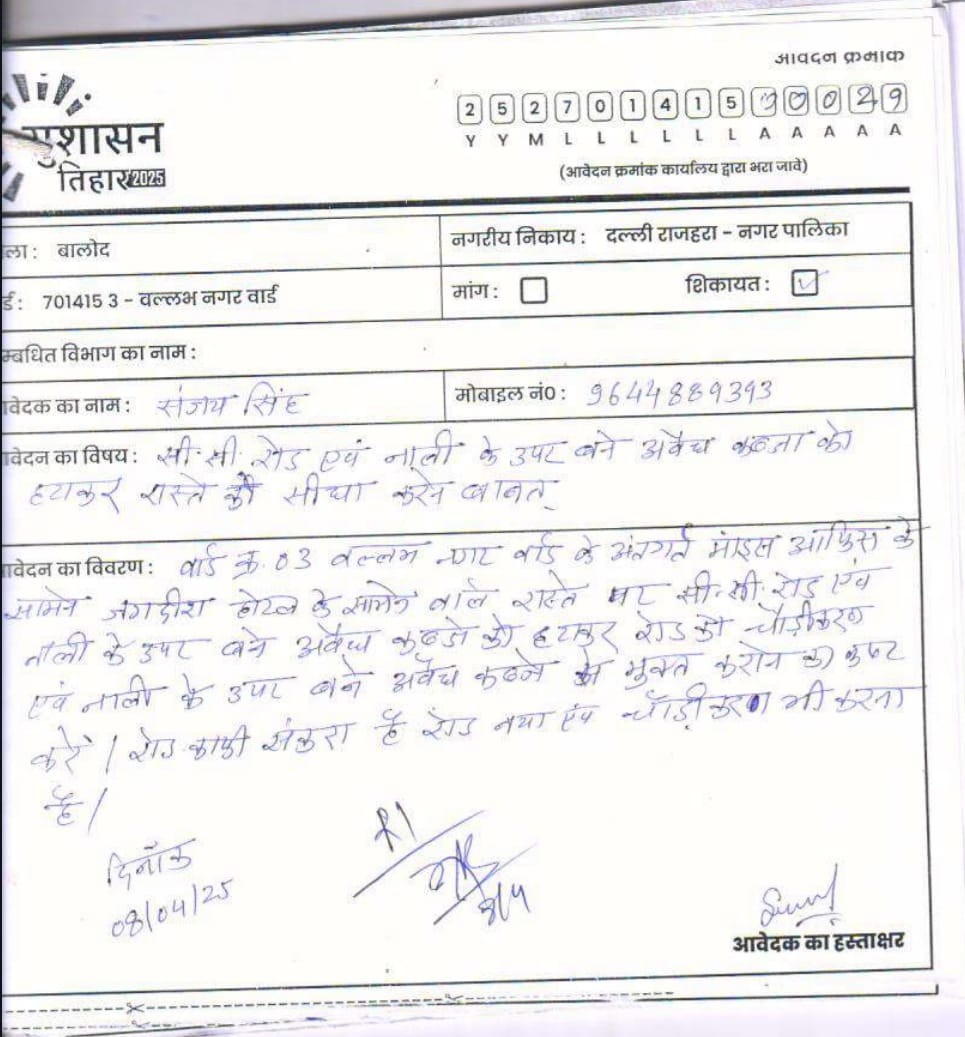 आवदन क्रमांक
सुशासन
तिहार 2025
2 5 2 7 0 1 4 1 5 0 0 0 2 9
Y Y M L L L L L L A A A A A
(आवेदन क्रमांक कार्यालय द्वारा भरा जावे)
ला : बालोद
नगरीय निकाय : दल्ली राजहरा - नगर पालिका
र्ड : 701415 3 - वल्लभ नगर वार्ड
मांग :
शिकायत : ✓
म्बधित विभाग का नाम :
वेदक का नाम : संजय सिंह
मोबाइल नं0 : 9644889393
वेदन का विषय : सी.सी. रोड एवं नाली के उपर बने अवैध कब्जा को
हटाकर रास्ते को सीधा करने बाबत्
वेदन का विवरण : वार्ड क्र. 03 वल्लभ नगर वार्ड के अंतगर्त माइंस ऑफिस के
सामने जगदीश होटल के सामने वाले रास्ते पर सी.सी. रोड एवं
नाली के उपर बने अवैध कब्जे को हटाकर रोड को चौड़ीकरण
एवं नाली के उपर बने अवैध कब्जे से मुक्त कराने का कष्ट
करें / रोड काफी संकरा है रोड नया एंव चौड़ीकरण भी करना
है /
दिनाँक
08/04/25
8/4
आवेदक का हस्ताक्षर